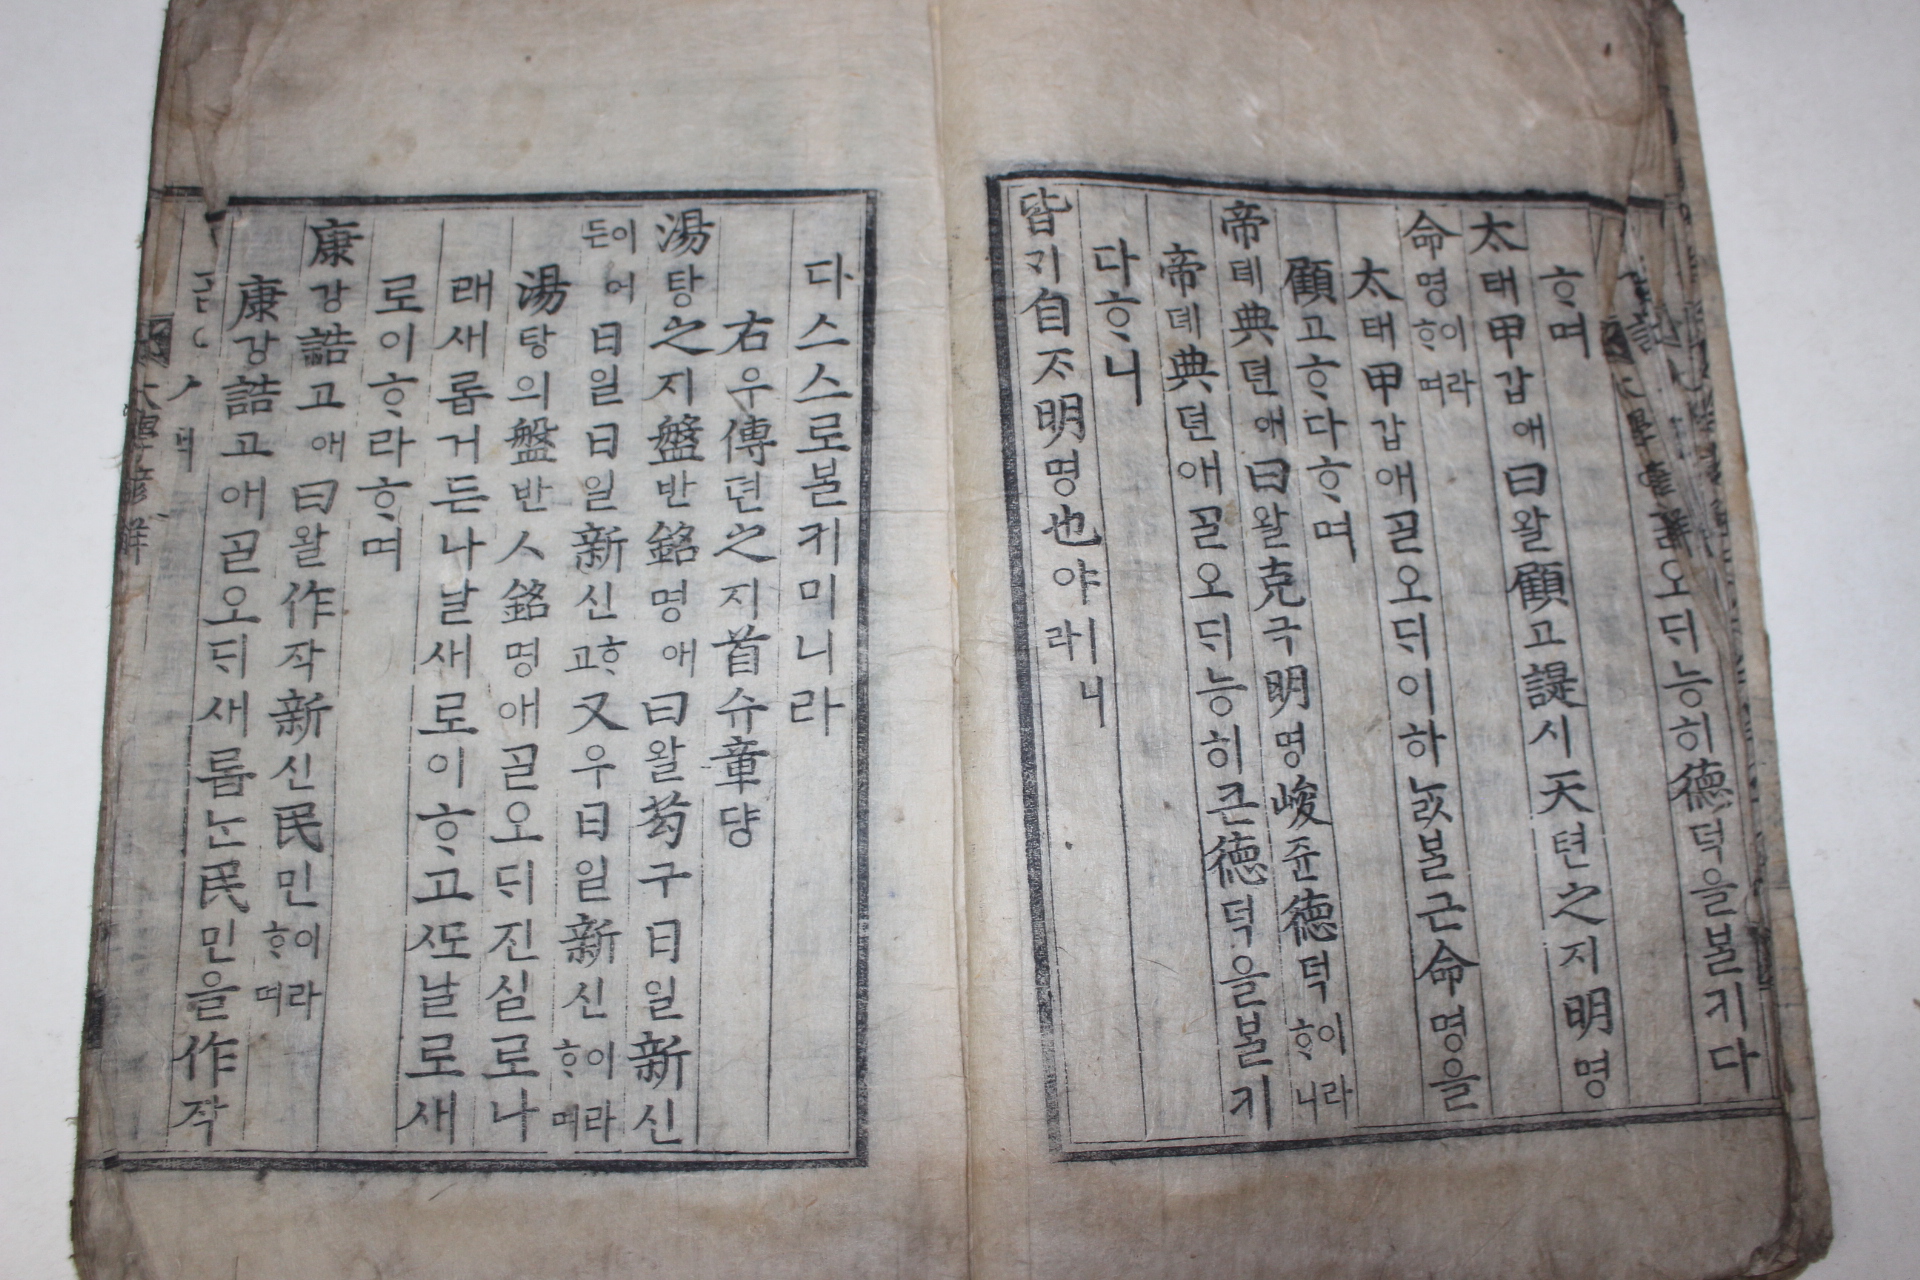 골오ᄃᆡ능히德덕을ᄇᆞᆯ기다
ᄒᆞ며
太태甲갑애曰왈顧고諟시天텬之지明명
命명이라ᄒᆞ며
太태甲갑애ᄀᆞᆯ오ᄃᆡ이하ᄂᆞᆳᄇᆞᆯ근命명을
顧고ᄒᆞ다ᄒᆞ며
帝뎨典뎐애曰왈克극明명峻쥰德덕이라ᄒᆞ니
帝뎨典뎐애ᄀᆞᆯ오ᄃᆡ능히큰德덕을ᄇᆞᆯ기
다ᄒᆞ니
皆ᄀᆡ自ᄌᆞ明명也야ㅣ니라
다스스로ᄇᆞᆯ키미니라
右우傳뎐之지首슈章쟝
湯탕之지盤반銘명애曰왈苟구日일新신
이어든日일日일新신ᄒᆞ고又우日일新신이라ᄒᆞ며
湯탕의盤반人銘명애ᄀᆞᆯ오ᄃᆡ진실로나
래새롭거든나날새로이ᄒᆞ고ᄯᅩ날로새
로이ᄒᆞ라ᄒᆞ며
康강誥고애曰왈作작新신民민이라ᄒᆞ며
康강誥고애ᄀᆞᆯ오ᄃᆡ새롭ᄂᆞᆫ民민을作작